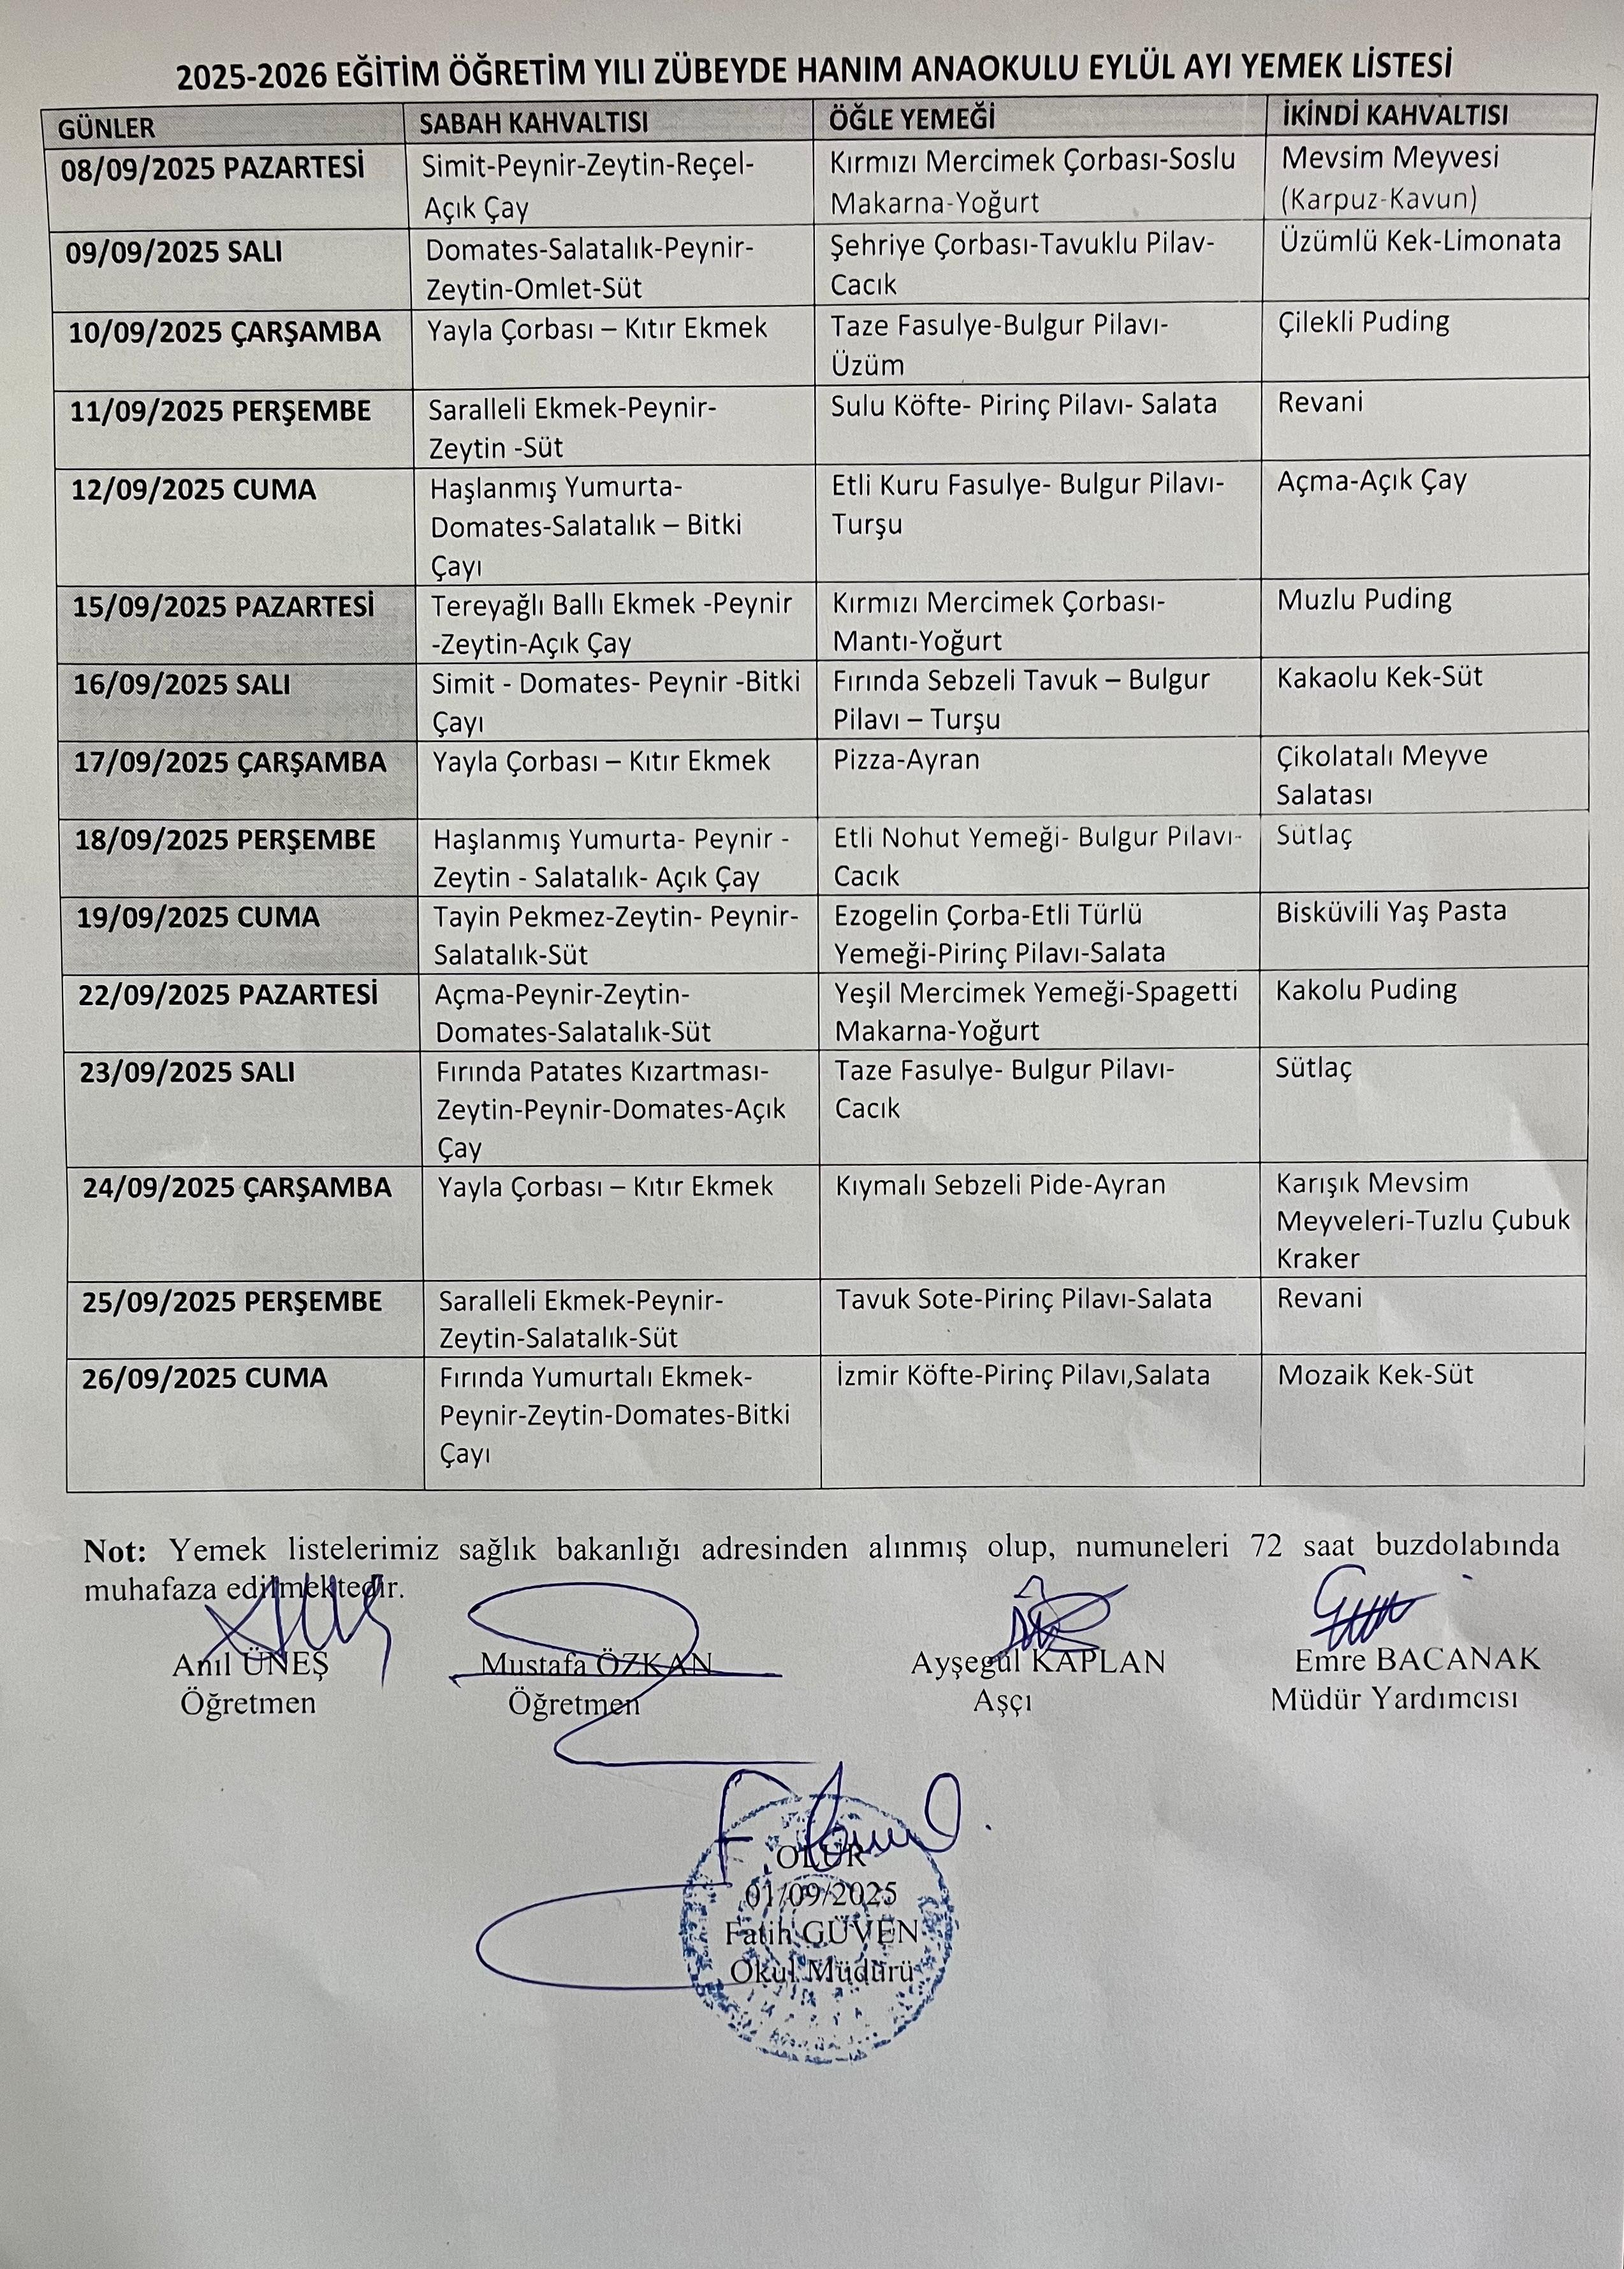 2025-2026 EĞİTİM ÖĞRETİM YILI ZÜBEYDE HANIM ANAOKULU EYLÜL AYI YEMEK LİSTESİ
GÜNLER SABAH KAHVALTISI ÖĞLE YEMEĞİ İKİNDİ KAHVALTISI
08/09/2025 PAZARTESİ Simit-Peynir-Zeytin-Reçel- Kırmızı Mercimek Çorbası-Soslu Mevsim Meyvesi
Açık Çay Makarna-Yoğurt (Karpuz-Kavun)
09/09/2025 SALI Domates-Salatalık-Peynir- Şehriye Çorbası-Tavuklu Pilav- Üzümlü Kek-Limonata
Zeytin-Omlet-Süt Cacık
10/09/2025 ÇARŞAMBA Yayla Çorbası – Kıtır Ekmek Taze Fasulye-Bulgur Pilavı- Çilekli Puding
Üzüm
11/09/2025 PERŞEMBE Saralleli Ekmek-Peynir- Sulu Köfte- Pirinç Pilavı- Salata Revani
Zeytin -Süt
12/09/2025 CUMA Haşlanmış Yumurta- Etli Kuru Fasulye- Bulgur Pilavı- Açma-Açık Çay
Domates-Salatalık – Bitki Turşu
Çayı
15/09/2025 PAZARTESİ Tereyağlı Ballı Ekmek -Peynir Kırmızı Mercimek Çorbası- Muzlu Puding
-Zeytin-Açık Çay Mantı-Yoğurt
16/09/2025 SALI Simit - Domates- Peynir -Bitki Fırında Sebzeli Tavuk – Bulgur Kakaolu Kek-Süt
Çayı Pilavı – Turşu
17/09/2025 ÇARŞAMBA Yayla Çorbası – Kıtır Ekmek Pizza-Ayran Çikolatalı Meyve
Salatası
18/09/2025 PERŞEMBE Haşlanmış Yumurta- Peynir - Etli Nohut Yemeği- Bulgur Pilavı- Sütlaç
Zeytin - Salatalık- Açık Çay Cacık
19/09/2025 CUMA Tayin Pekmez-Zeytin- Peynir- Ezogelin Çorba-Etli Türlü Bisküvili Yaş Pasta
Salatalık-Süt Yemeği-Pirinç Pilavı-Salata
22/09/2025 PAZARTESİ Açma-Peynir-Zeytin- Yeşil Mercimek Yemeği-Spagetti Kakolu Puding
Domates-Salatalık-Süt Makarna-Yoğurt
23/09/2025 SALI Fırında Patates Kızartması- Taze Fasulye- Bulgur Pilavı- Sütlaç
Zeytin-Peynir-Domates-Açık Cacık
Çay
24/09/2025 ÇARŞAMBA Yayla Çorbası – Kıtır Ekmek Kıymalı Sebzeli Pide-Ayran Karışık Mevsim
Meyveleri-Tuzlu Çubuk
Kraker
25/09/2025 PERŞEMBE Saralleli Ekmek-Peynir- Tavuk Sote-Pirinç Pilavı-Salata Revani
Zeytin-Salatalık-Süt
26/09/2025 CUMA Fırında Yumurtalı Ekmek- İzmir Köfte-Pirinç Pilavı,Salata Mozaik Kek-Süt
Peynir-Zeytin-Domates-Bitki
Çayı
Not: Yemek listelerimiz sağlık bakanlığı adresinden alınmış olup, numuneleri 72 saat buzdolabında
muhafaza edilmektedir.
Anıl ÜNEŞ Mustafa ÖZKAN Ayşegül KAPLAN Emre BACANAK
Öğretmen Öğretmen Aşçı Müdür Yardımcısı
OLUR
01/09/2025
Fatih GÜVEN
Okul Müdürü